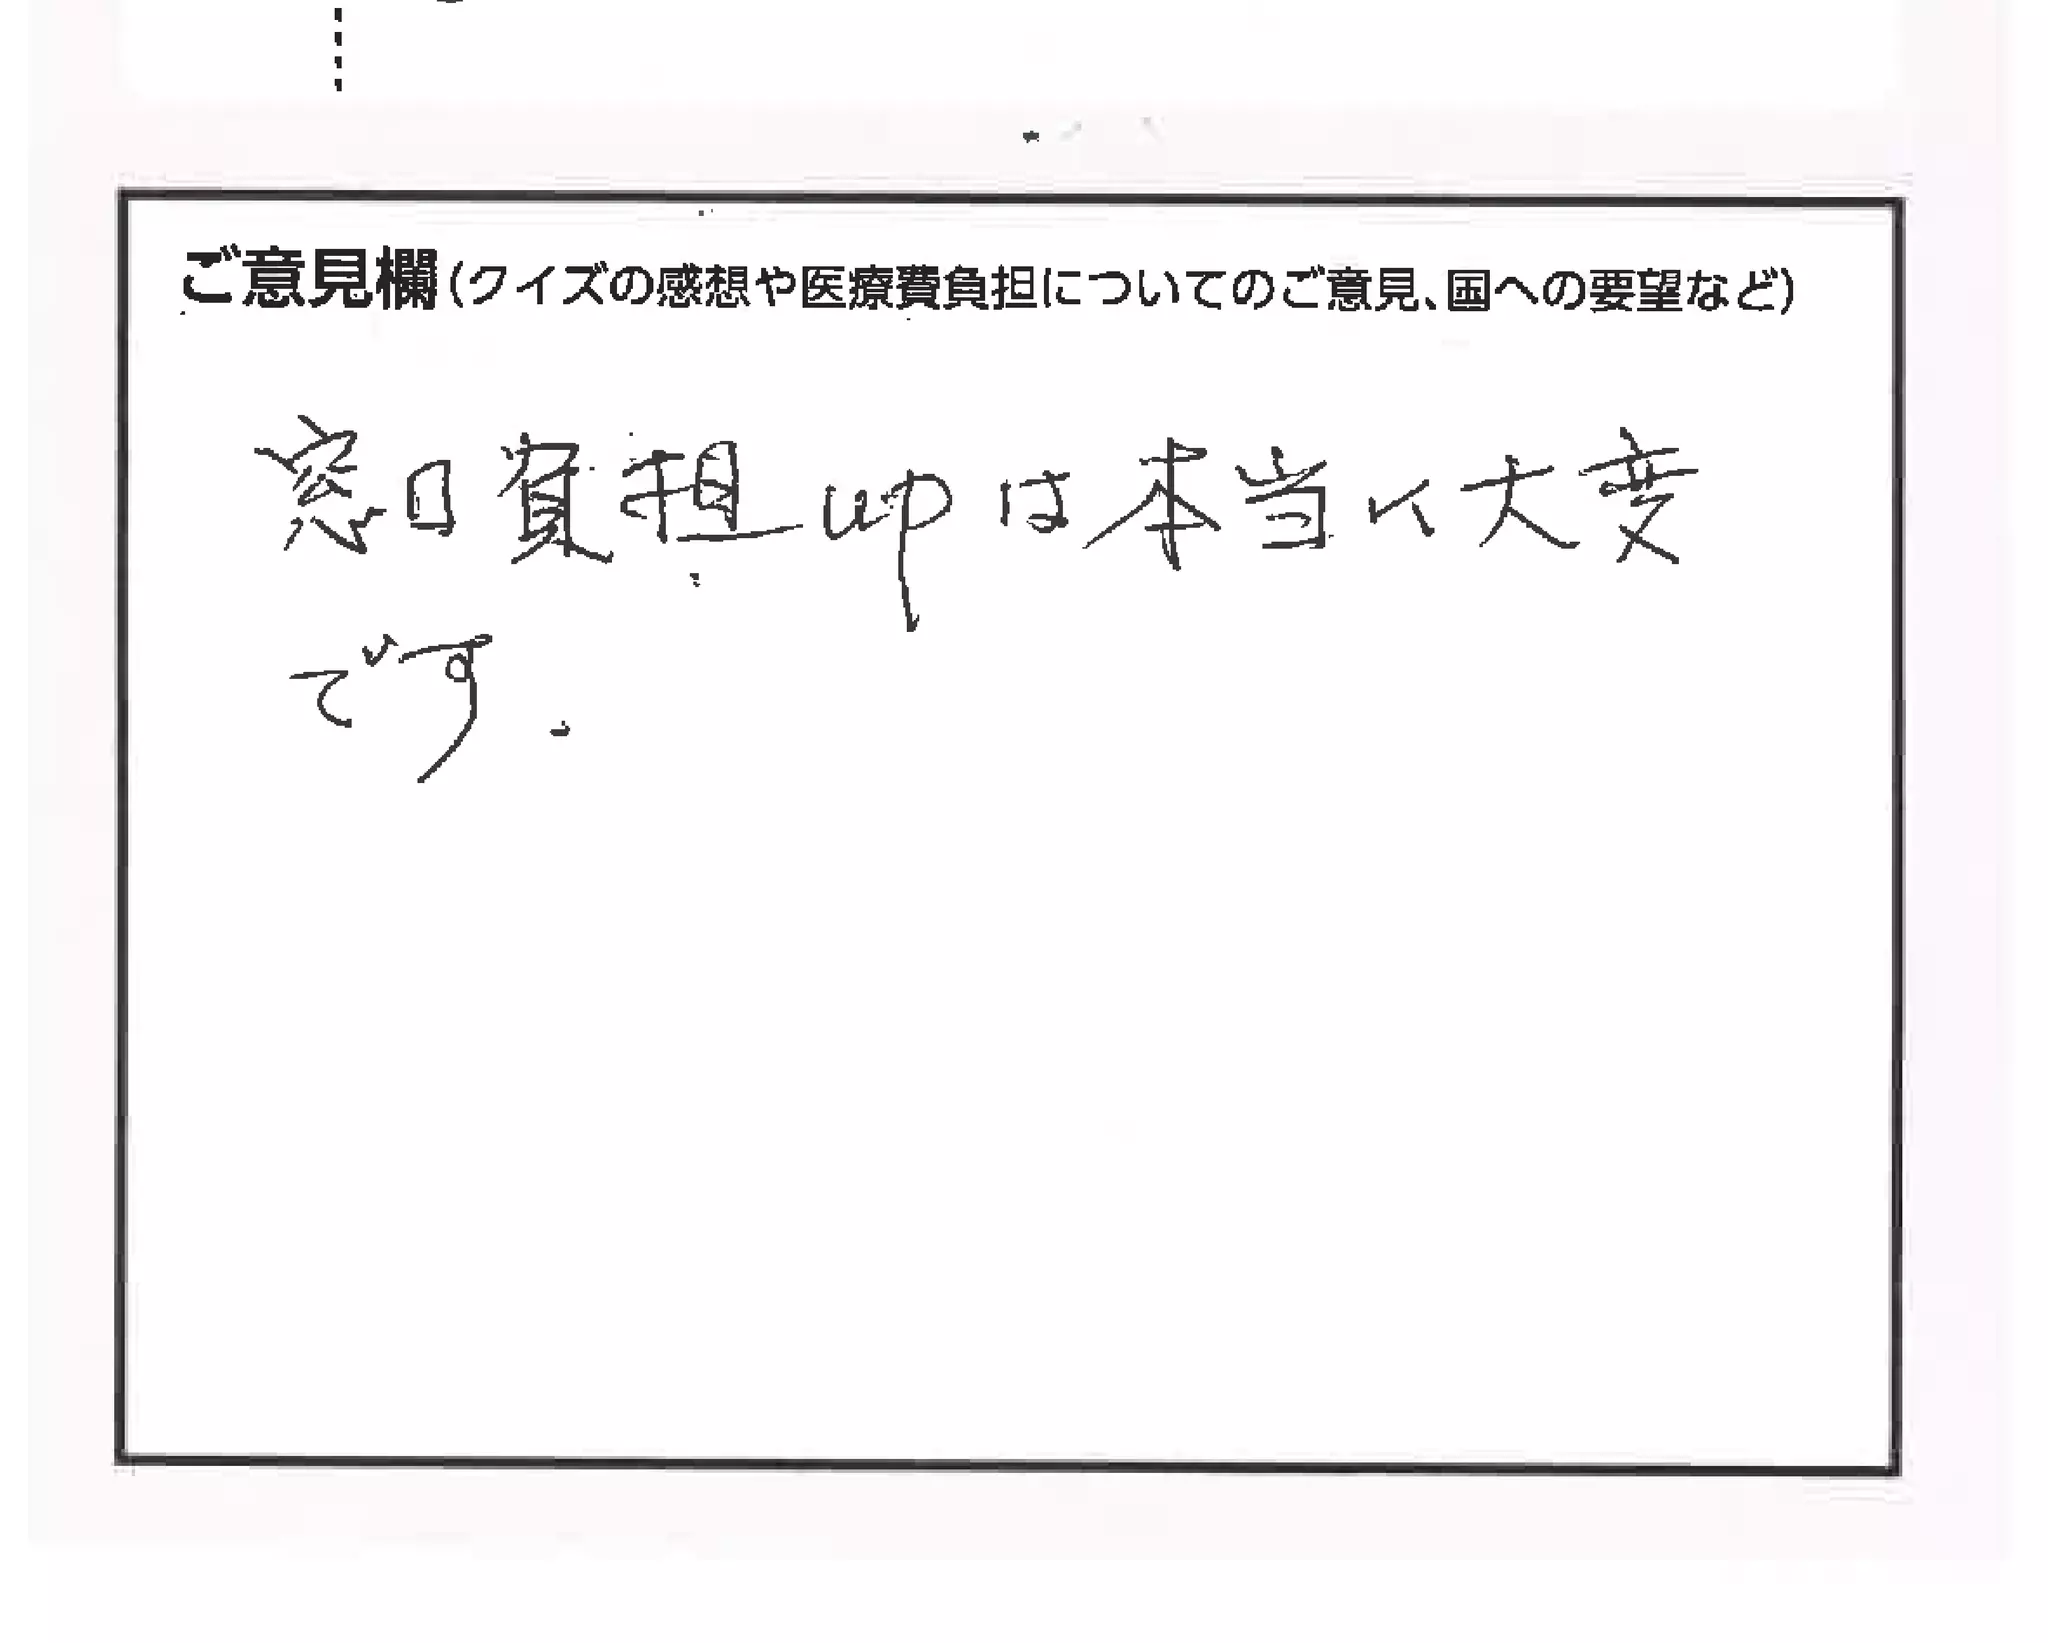 ご意見欄(クイズの感想や医療費負担についてのご意見、国への要望など)
窓口負担upは本当に大変
です.